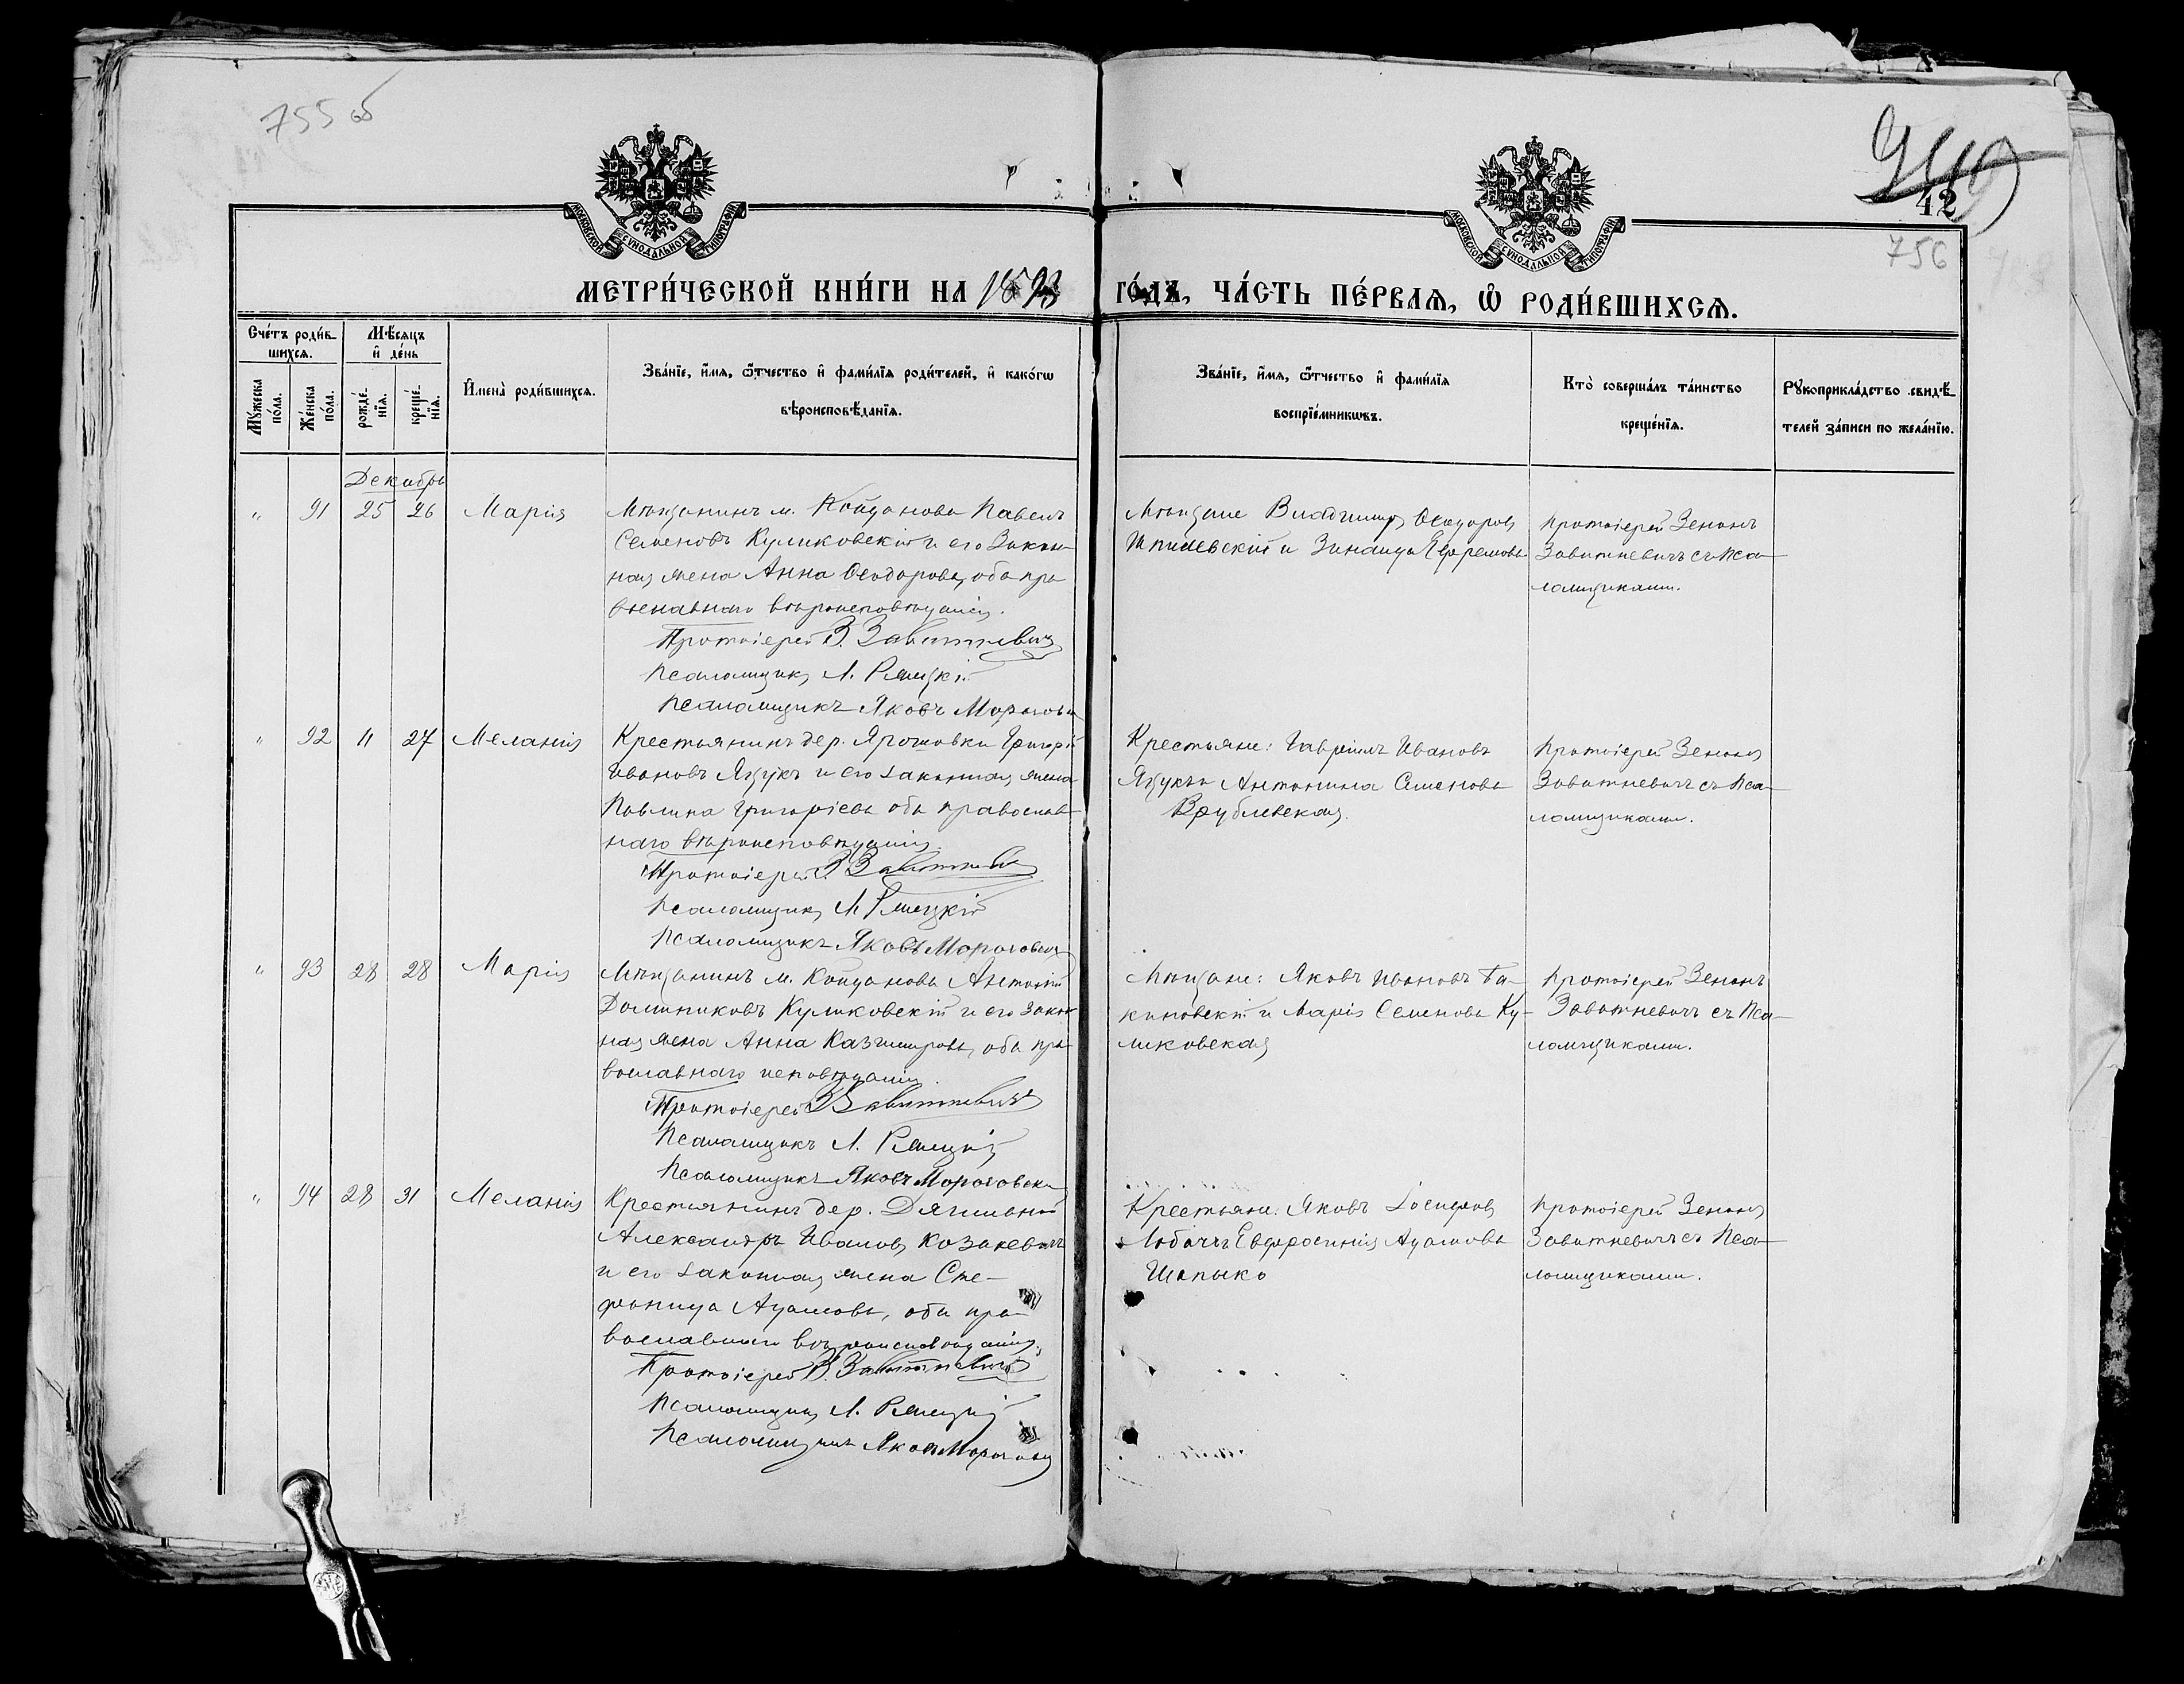 755 об
МОСКОВСКОЙ СѴНОДАЛЬНОЙ ТИПОГРАФІИ
МОСКОВСКОЙ СѴНОДАЛЬНОЙ ТИПОГРАФІИ
42
756
МЕТРИ́ЧЕСКОЙ КНИ́ГИ НА 1893 ГО́ДЪ, ЧА́СТЬ ПЕ́РВАѦ, Ѽ РОДИ́ВШИХСѦ.
Сче́тъ роди́в-
шихсѧ.
Мѣ́сѧцъ
и҆ де́нь
Мꙋ́жеска
по́ла.
Же́нска
по́ла.
рожде́-
нїѧ.
креще́-
нїѧ.
И҆мена̀ роди́вшихсѧ.
Зва́нїе, и҆́мѧ, ѻ҆́тчество и҆ фами́лїѧ роди́телей, и҆ како́гѡ
вѣроисповѣ́данїѧ.
Зва́нїе, и҆́мѧ, ѻ҆́тчество и҆ фами́лїѧ
воспрїе́мникѡвъ.
Кто̀ соверша́лъ та́инство
креще́нїѧ.
Рꙋкоприкла́дство свидѣ́-
телей за́писи по жела́нїю.
Декабрь
" 91 25 26 Марія
Мѣщанинъ м. Койданова Павелъ
Семеновъ Куликовскій и его Закон-
ная жена Анна Ѳеодорова, оба пра-
вославнаго вѣроисповѣданія.
Протоіерей З. Завитневичъ
Псаломщикъ Л.
Псаломщикъ Яковъ
Мѣщане Владимиръ Ѳеодоровъ
Шпилевскій и Зинаида Ефремова
Протоіерей Зенонъ
Завитневичъ съ Пса-
ломщиками.
" 92 11 27 Меланія
Крестьянинъ дер. Ярошовки Григорій
Ивановъ Яцукъ и его законная жена
Павлина Григоріева оба православ-
наго вѣроисповѣданія.
Протоіерей З. Завитневичъ
Псаломщикъ Л.
Псаломщикъ Яковъ
Крестьяне: Гавріилъ Ивановъ
Яцукъ и Антонина Семенова
Врублевская.
Протоіерей Зенонъ
Завитневичъ съ Пса-
ломщиками.
" 93 28 28 Марія
Мѣщанинъ м. Койданова Антоній
Доминиковъ Куликовскій и его закон-
ная жена Анна Казимирова, оба пра-
вославнаго исповѣданія.
Протоіерей З. Завитневичъ
Псаломщикъ Л.
Псаломщикъ Яковъ
Мѣщане: Яковъ Ивановъ
и Марія Семенова Ку-
ликовская
Протоіерей Зенонъ
Завитневичъ съ Пса-
ломщиками.
" 94 28 31 Меланія
Крестьянинъ дер.
Александръ Ивановъ Козакевичъ
и его законная жена Сте-
фанида Адамова, оба пра-
вославнаго вѣроисповѣданія.
Протоіерей З. Завитневичъ
Псаломщикъ Л.
Псаломщикъ Яковъ
Крестьяне: Яковъ Іосифовъ
Евфросинія Адамова
Шапыко
Протоіерей Зенонъ
Завитневичъ съ Пса-
ломщиками.